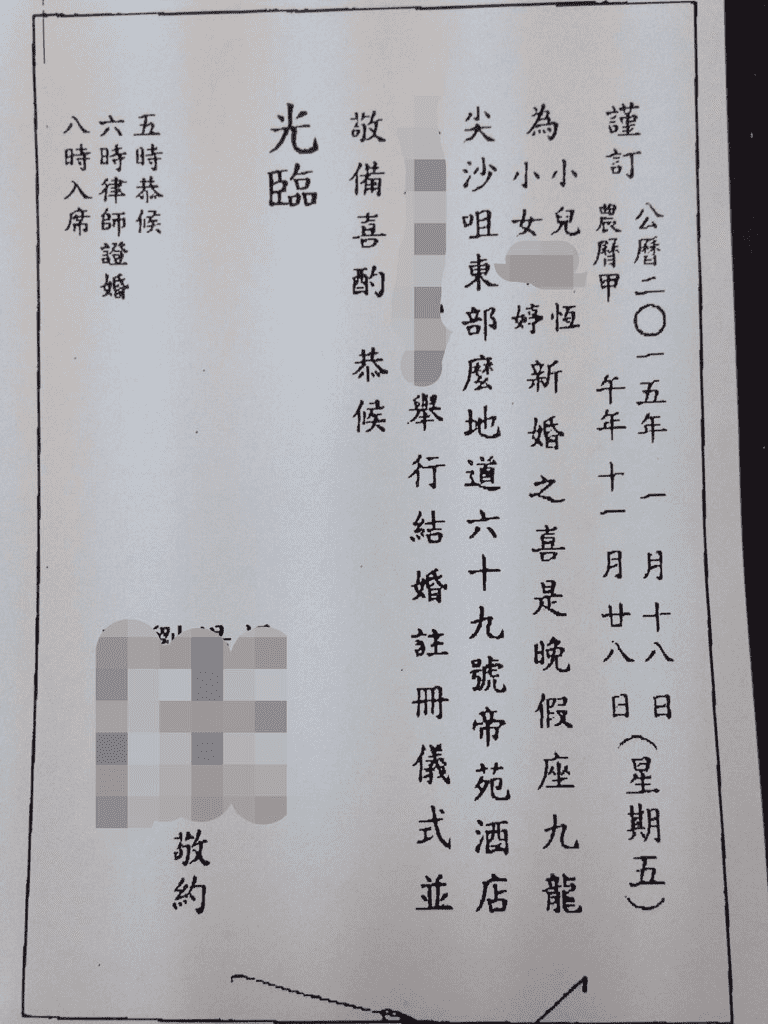 謹訂
公曆二〇一五年一月十八日
農曆甲午年十一月廿八日
(星期五)
為
小兒 恆
小女 婷
新婚之喜是晚假座九龍
尖沙咀東部麼地道六十九號帝苑酒店
舉行結婚註冊儀式並
敬備喜酌 恭候
光臨
敬約
五時恭候
六時律師證婚
八時入席